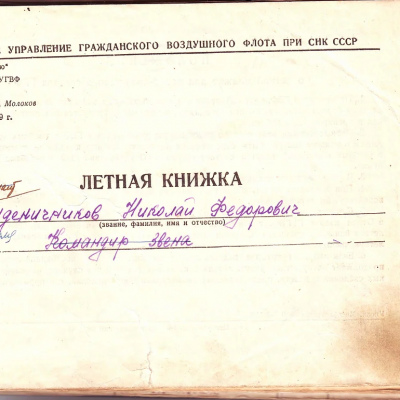 УПРАВЛЕНИЕ ГРАЖДАНСКОГО ВОЗДУШНОГО ФЛОТА ПРИ СНК СССР
УГВФ
Молоков
9 г.
ЛЕТНАЯ КНИЖКА
Николай Федорович
(звание, фамилия, имя и отчество)
Командир Звена